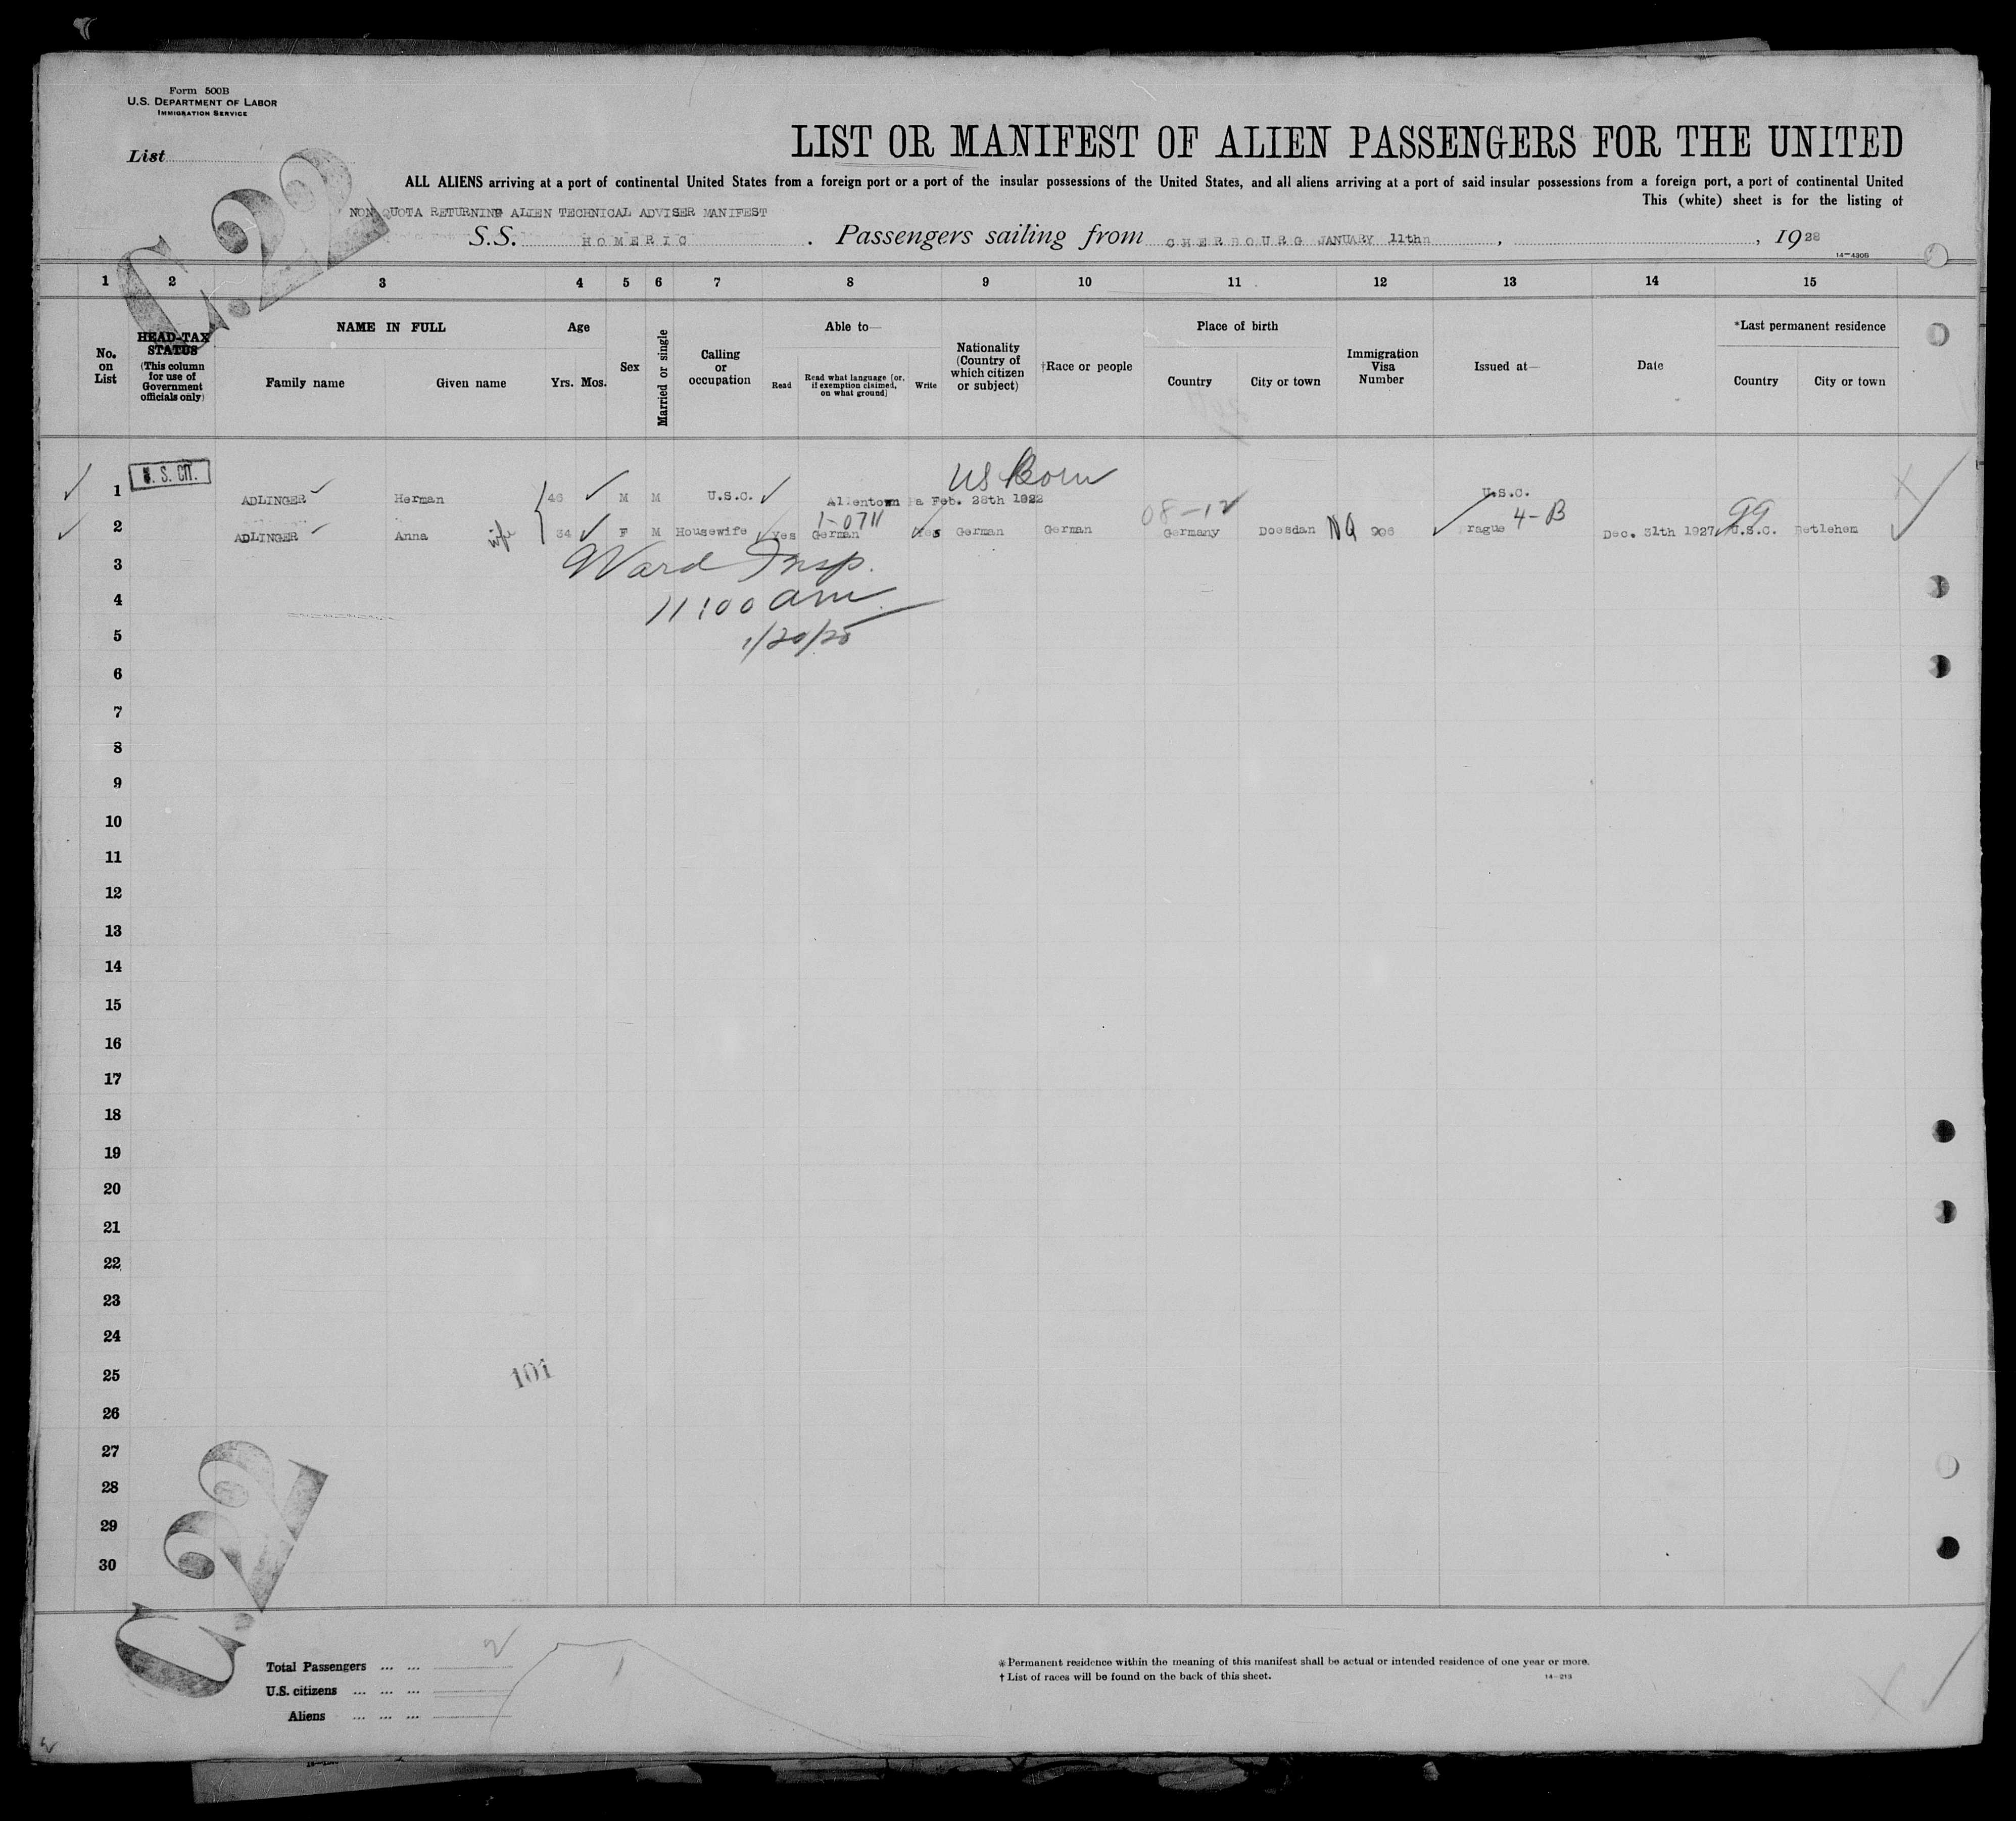 Form 500B
U.S. DEPARTMENT OF LABOR
IMMIGRATION SERVICE
List
C.22
LIST OR MANIFEST OF ALIEN PASSENGERS FOR THE UNITED
ALL ALIENS arriving at a port of continental United States from a foreign port or a port of the insular possessions of the United States, and all aliens arriving at a port of said insular possessions from a foreign port, a port of continental United
This (white) sheet is for the listing of
NON QUOTA RETURNING ALIEN TECHNICAL ADVISER MANIFEST
S.S. HOMERIC . Passengers sailing from CHERBOURG JANUARY 11th , , 1928
14-430B
1 2 3 4 5 6 7 8 9 10 11 12 13 14 15
No. on List
HEAD-TAX STATUS (This column for use of Government officials only)
NAME IN FULL
Family name Given name
Age
Yrs. Mos.
Sex
Married or single
Calling or occupation
Able to—
Read
Read what language [or, if exemption claimed, on what ground]
Write
Nationality (Country of which citizen or subject)
†Race or people
Place of birth
Country City or town
Immigration Visa Number
Issued at—
Date
*Last permanent residence
Country City or town
US Born
1 U.S. CIT. ADLINGER Herman 46 M M U.S.C. Allentown Pa Feb. 28th 1922 U.S.C.
1-0711 08-12 4-B 99
2 ADLINGER Anna wife 34 F M Housewife Yes German Yes German German Germany Doesdan NQ 906 rague Dec. 31th 1927 U.S.C. Betlehem
3 Ward Insp.
4 11:00 am
5 1/20/28
6
7
8
9
10
11
12
13
14
15
16
17
18
19
20
21
22
23
24
25 101
26
27
28
29
30
C.22
Total Passengers ... ... 2
U.S. citizens ... ... ... 1
Aliens ... ... ...
* Permanent residence within the meaning of this manifest shall be actual or intended residence of one year or more.
† List of races will be found on the back of this sheet.
14-213